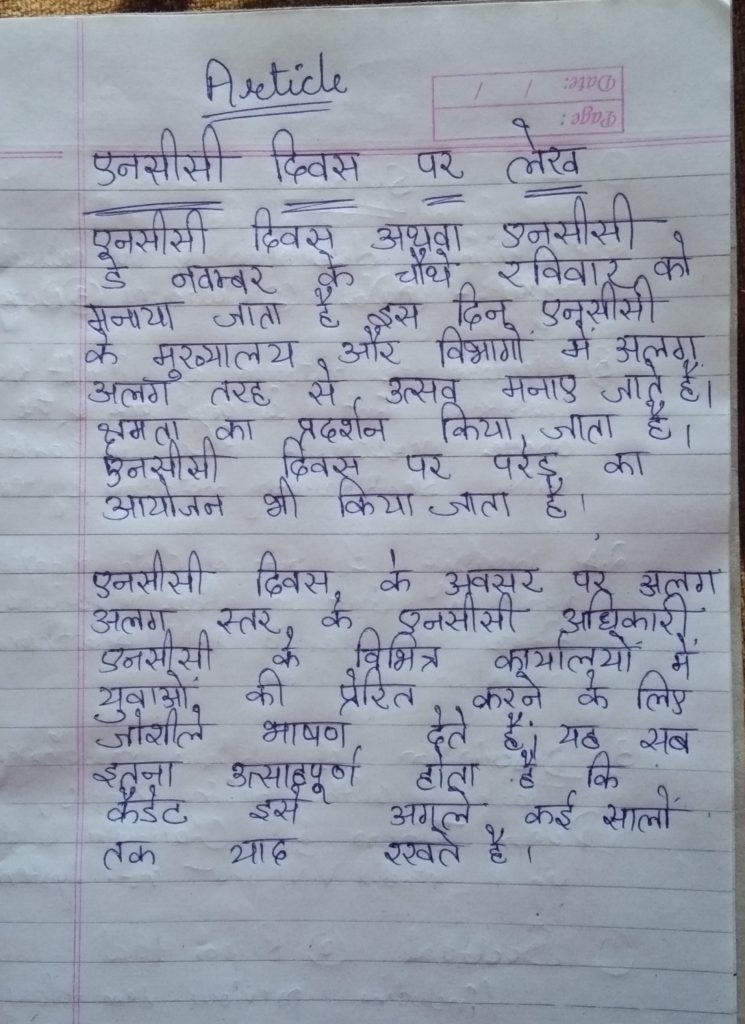 Article
Date: / /
Page:
एनसीसी दिवस पर लेख
एनसीसी दिवस अथवा एनसीसी
डे नवम्बर के चौथे रविवार को
मनाया जाता है इस दिन एनसीसी
के मुख्यालय और विभागों में अलग
अलग तरह से उत्सव मनाए जाते हैं।
क्षमता का प्रदर्शन किया जाता है।
एनसीसी दिवस पर परेड का
आयोजन भी किया जाता है।
एनसीसी दिवस के अवसर पर अलग
अलग स्तर के एनसीसी अधिकारी
एनसीसी के विभिन्न कार्यालयों में
युवाओं की प्रेरित करने के लिए
जोशीले भाषण देते हैं। यह सब
इतना उत्साहपूर्ण होता है कि
कैडेट इसे अगले कई सालों
तक याद रखते है।